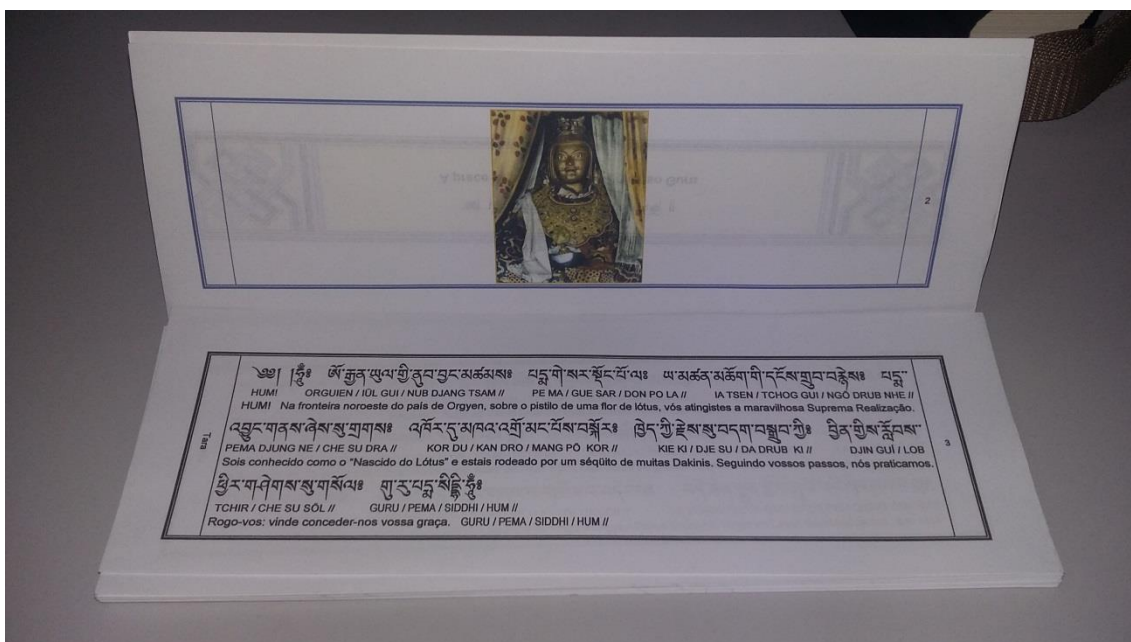 2
༄༅། །ཧཱུྃ༔ ཨོ་རྒྱན་ཡུལ་གྱི་ནུབ་བྱང་མཚམས༔ པདྨ་གེ་སར་སྡོང་པོ་ལ༔ ཡ་མཚན་མཆོག་གི་དངོས་གྲུབ་བརྙེས༔ པདྨ་
HUM! ORGUIEN / IÜL GUI / NUB DJANG TSAM // PE MA / GUE SAR / DON PO LA // IA TSEN / TCHOG GUI / NGÖ DRUB NHE //
HUM! Na fronteira noroeste do país de Orgyen, sobre o pistilo de uma flor de lótus, vós atingistes a maravilhosa Suprema Realização.
འབྱུང་གནས་ཞེས་སུ་གྲགས༔ འཁོར་དུ་མཁའ་འགྲོ་མང་པོས་བསྐོར༔ ཁྱེད་ཀྱི་རྗེས་སུ་བདག་བསྒྲུབ་ཀྱི༔ བྱིན་གྱིས་རློབས་
PEMA DJUNG NE / CHE SU DRA // KOR DU / KAN DRO / MANG PÖ KOR // KIE KI / DJE SU / DA DRUB KI // DJIN GUÍ / LOB
Sois conhecido como o "Nascido do Lótus" e estais rodeado por um séqüito de muitas Dakinis. Seguindo vossos passos, nós praticamos.
ཕྱིར་གཤེགས་སུ་གསོལ༔ གུ་རུ་པདྨ་སིདྡྷི་ཧཱུྃ༔
TCHIR / CHE SU SÖL // GURU / PEMA / SIDDHI / HUM //
Rogo-vos: vinde conceder-nos vossa graça. GURU / PEMA / SIDDHI / HUM //
Tara
3